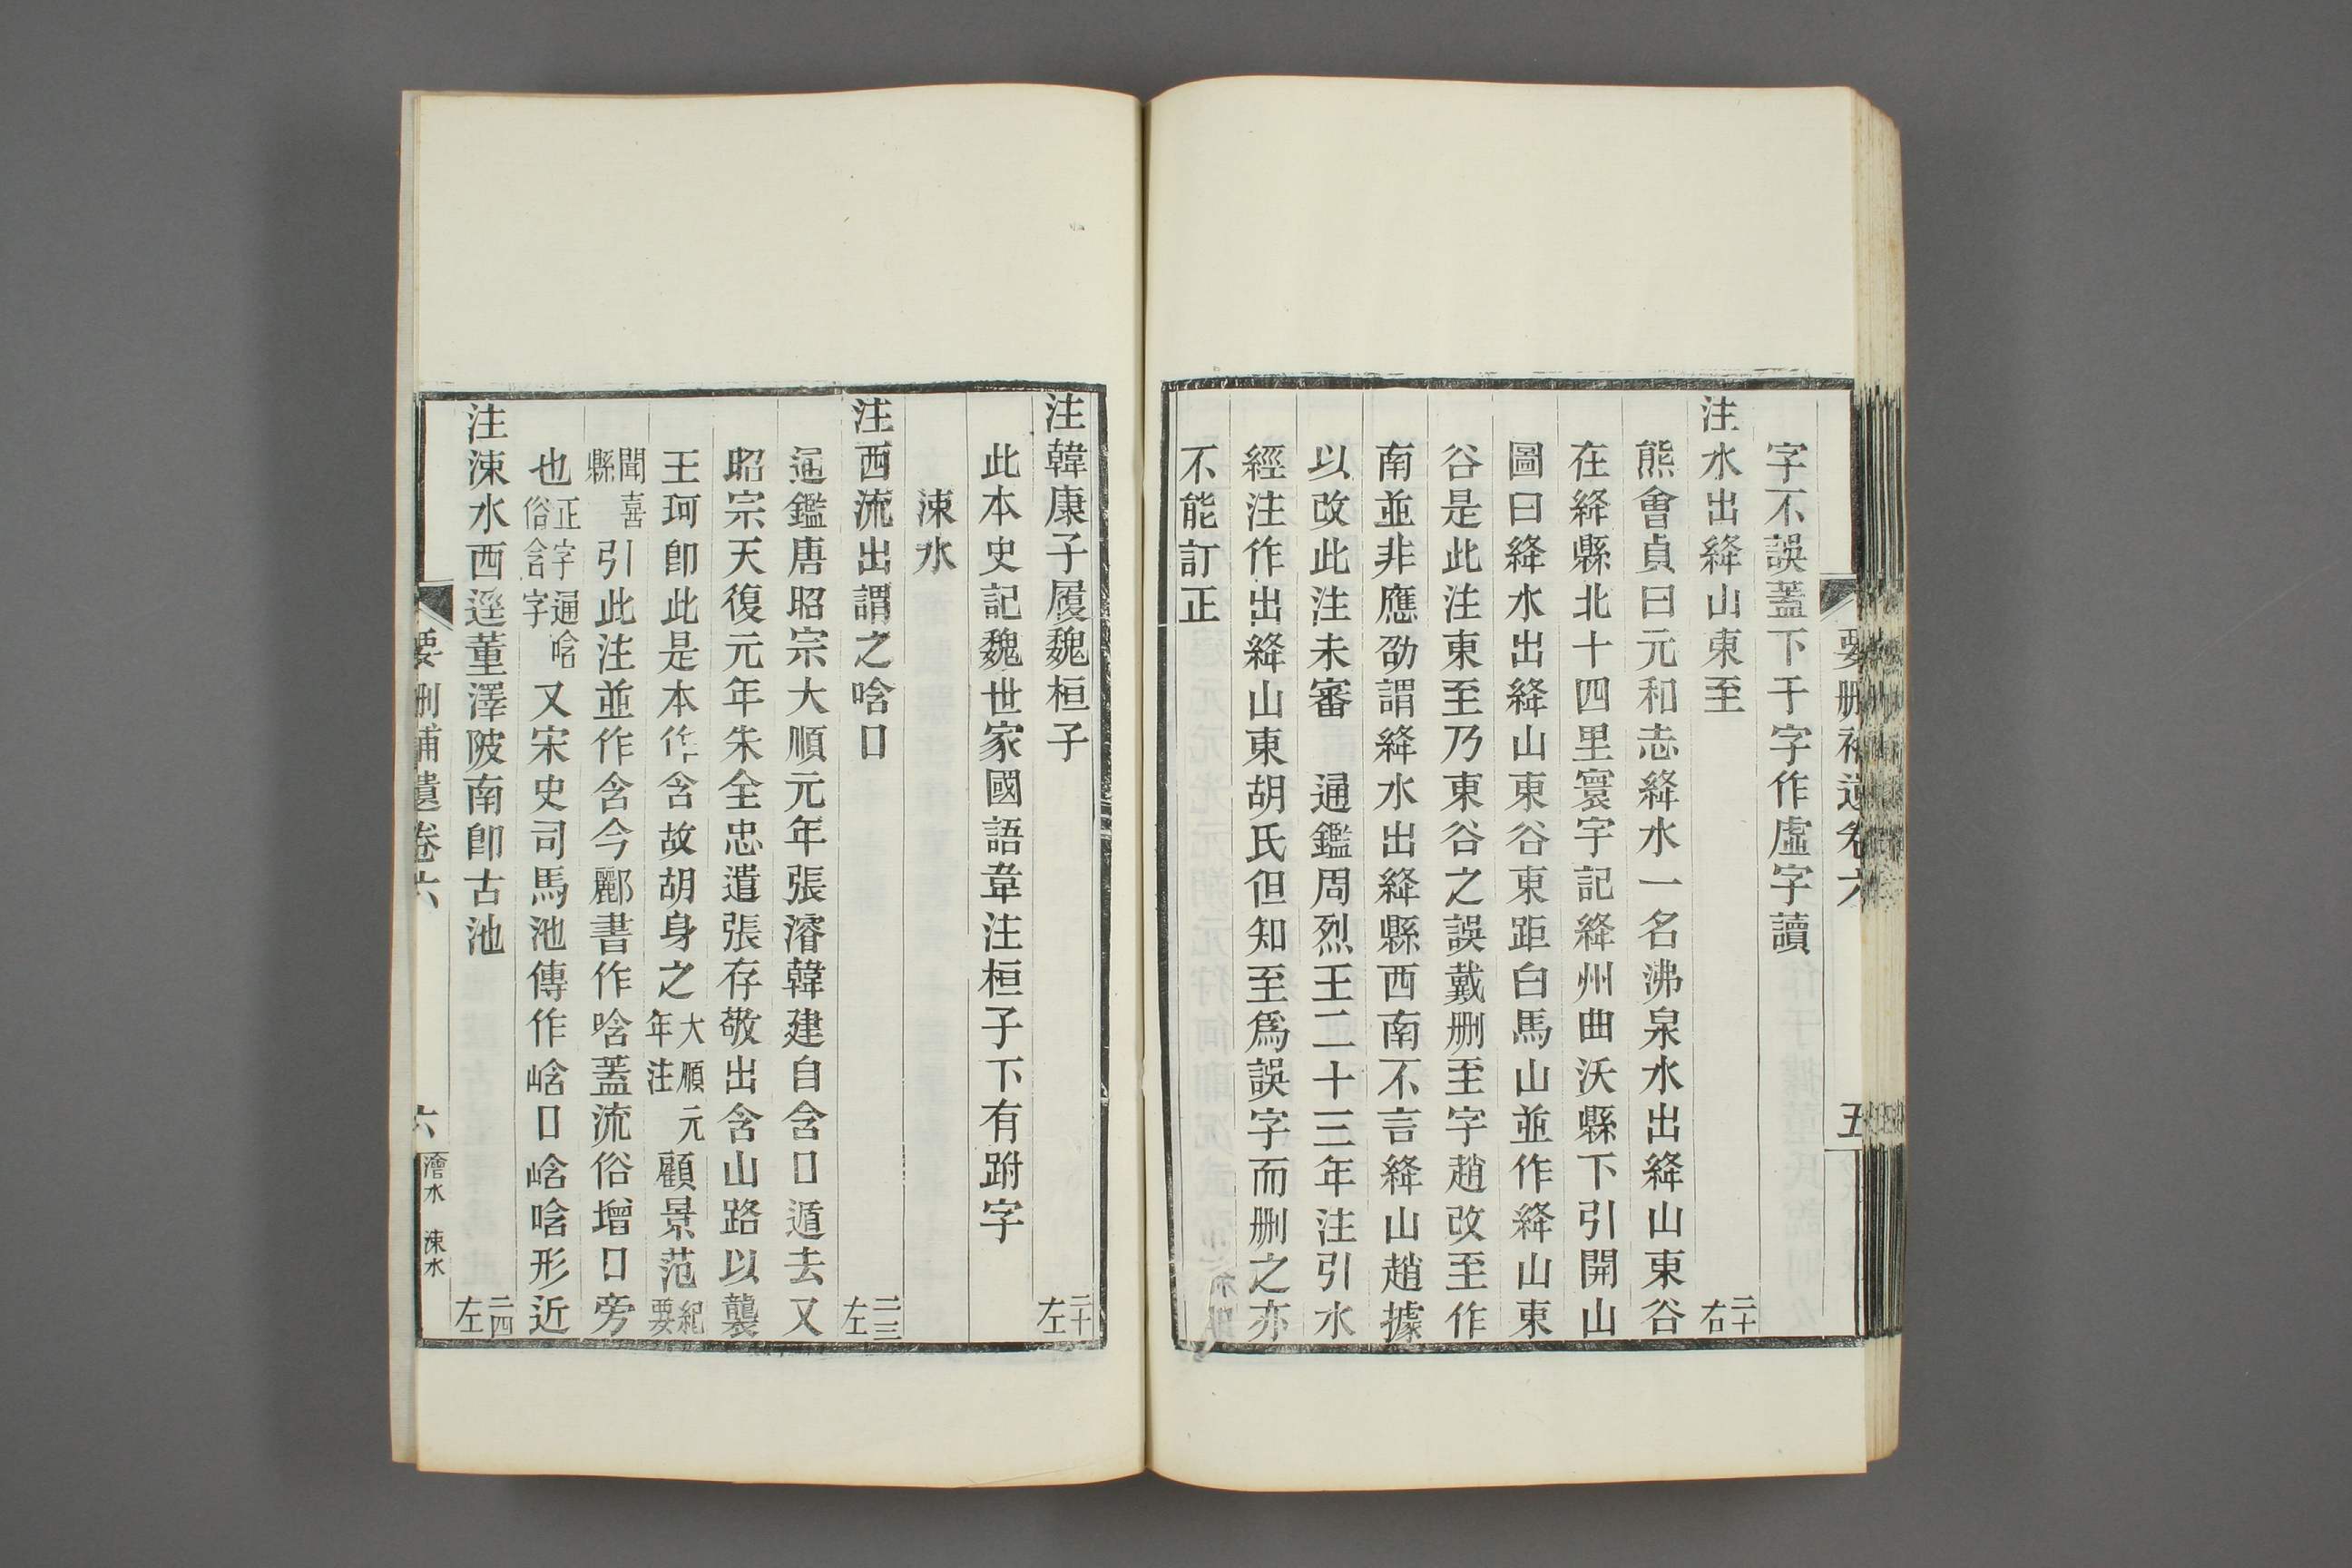 要刪補遺卷六
五
字不誤蓋下干字作虛字讀
注水出絳山東至 二十右
熊會貞曰元和志絳水一名沸泉水出絳山東谷
在絳縣北十四里寰宇記絳州曲沃縣下引開山
圖曰絳水出絳山東谷東距白馬山並作絳山東
谷是此注東至乃東谷之誤戴刪至字趙改至作
南並非應劭謂絳水出絳縣西南不言絳山趙據
以改此注未審 通鑑周烈王二十三年注引水
經注作出絳山東胡氏但知至爲誤字而刪之亦
不能訂正
注韓康子履魏桓子 二十左
此本史記魏世家國語韋注桓子下有跗字
涑水
注西流出謂之唅口 二三左
通鑑唐昭宗大順元年張濬韓建自含口遁去又
昭宗天復元年朱全忠遣張存敬出含山路以襲
王珂卽此是本作含故胡身之大順元年注顧景范紀要
聞喜縣引此注並作含今酈書作唅蓋流俗增口旁
也正字通唅俗含字又宋史司馬池傳作峆口峆唅形近
注涑水西逕董澤陂南卽古池 二四左
要刪補遺卷六
六
澮水 涑水